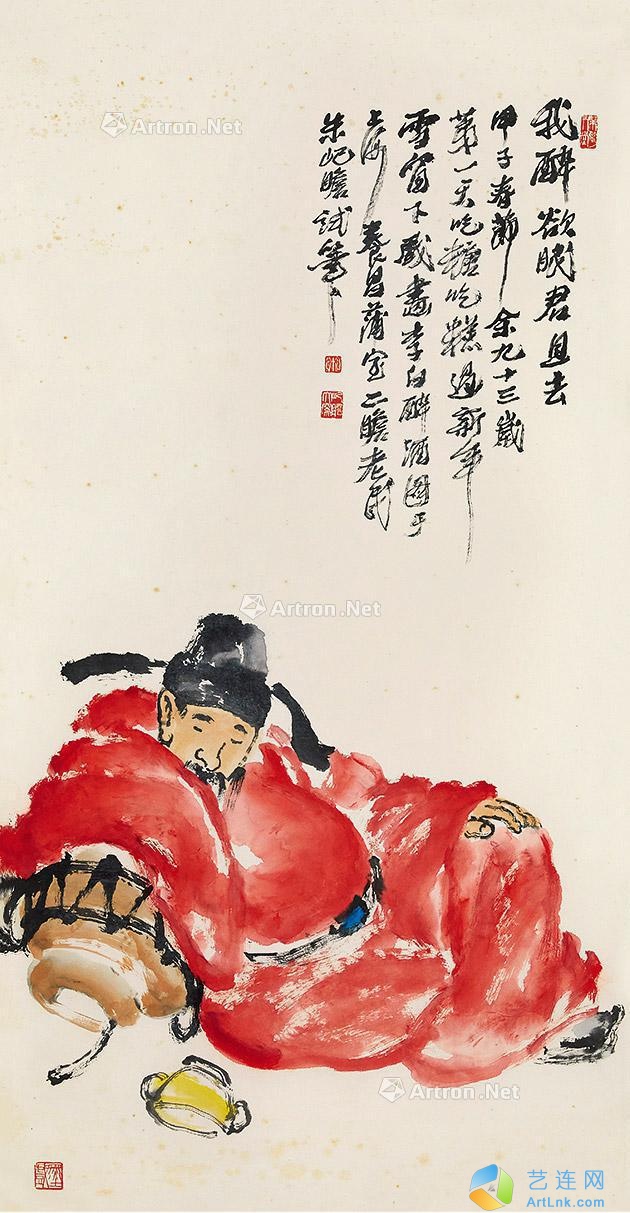 我醉欲眠君且去
甲子春节余九十三岁
第一天吃糖吃糕过新年
雪窗下戏画李白醉酒图于
上海养昌蒲室二瞻老民
朱屺瞻试笔
Artron.Net
Artron.Net
Artron.Net
Artron.Net
艺连网
ArtLink.com